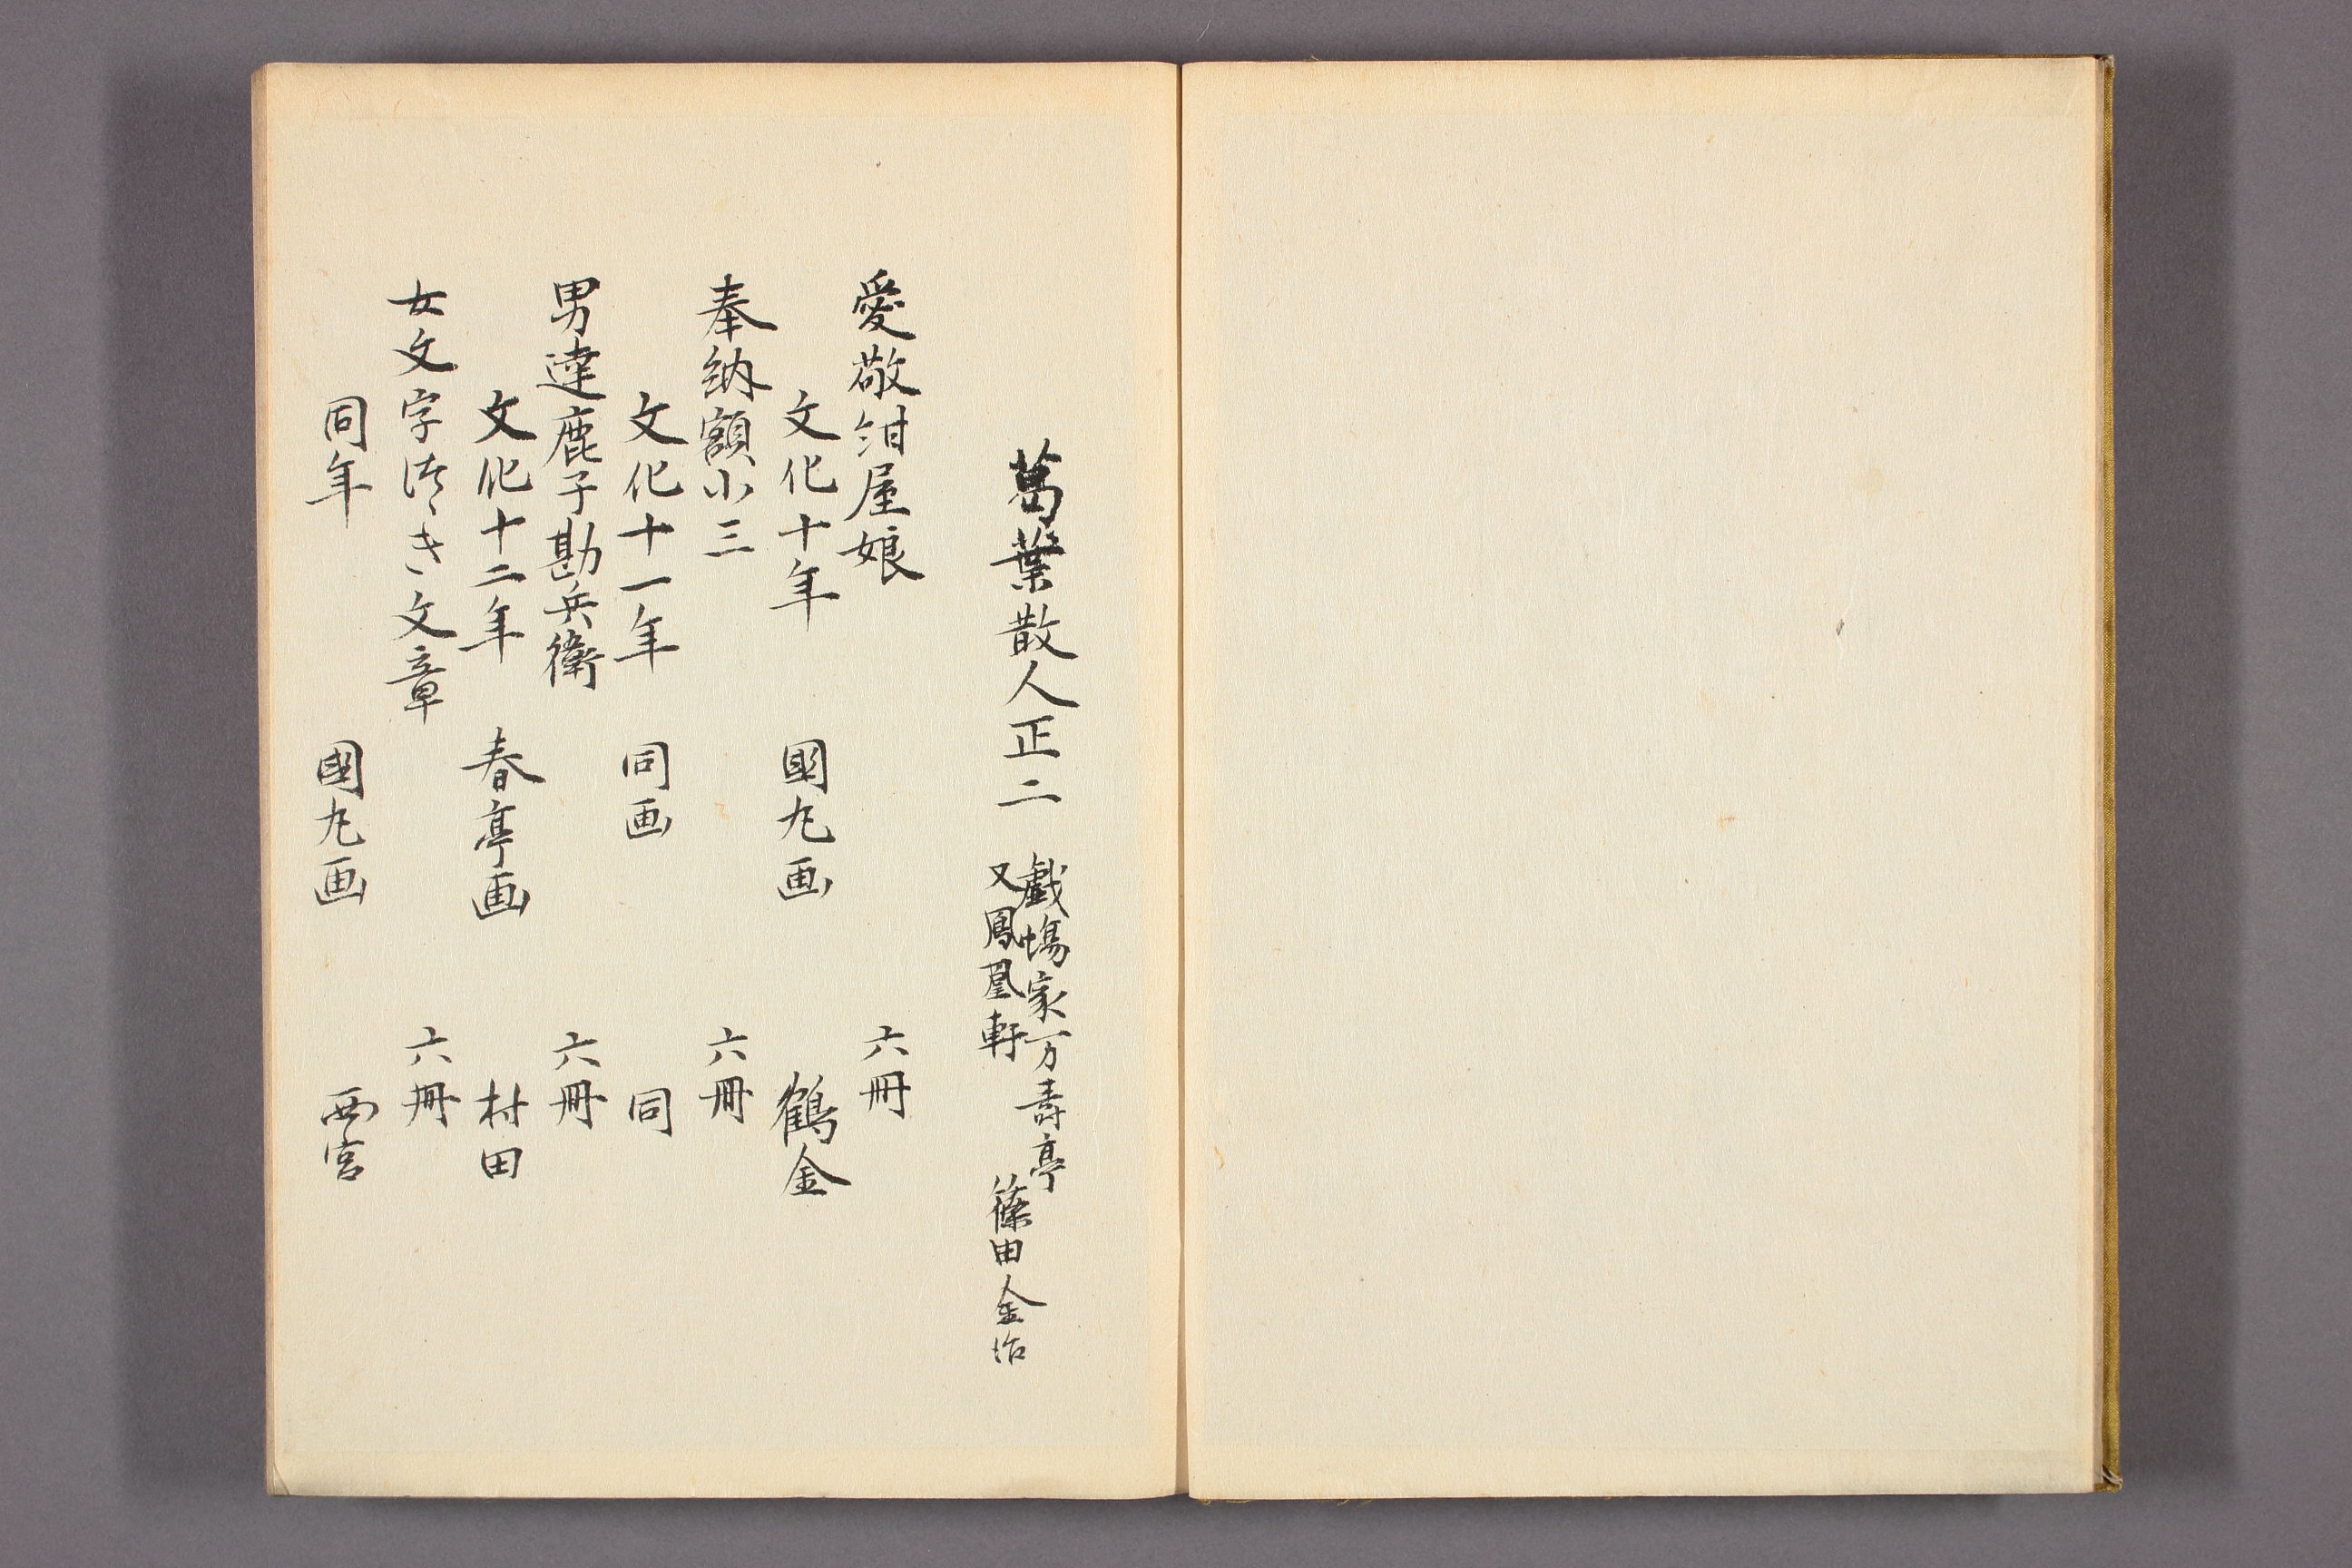 葛葉散人正二
戯場家万壽亭
又鳳凰軒
篠田金治
愛敬紺屋娘 六冊
文化十年 國丸画 鶴金
奉納額小三 六冊
文化十一年 同画 同
男達鹿子勘兵衛 六冊
文化十二年 春亭画 村田
女文字つゞき文章 六冊
同年 國丸画 西宮